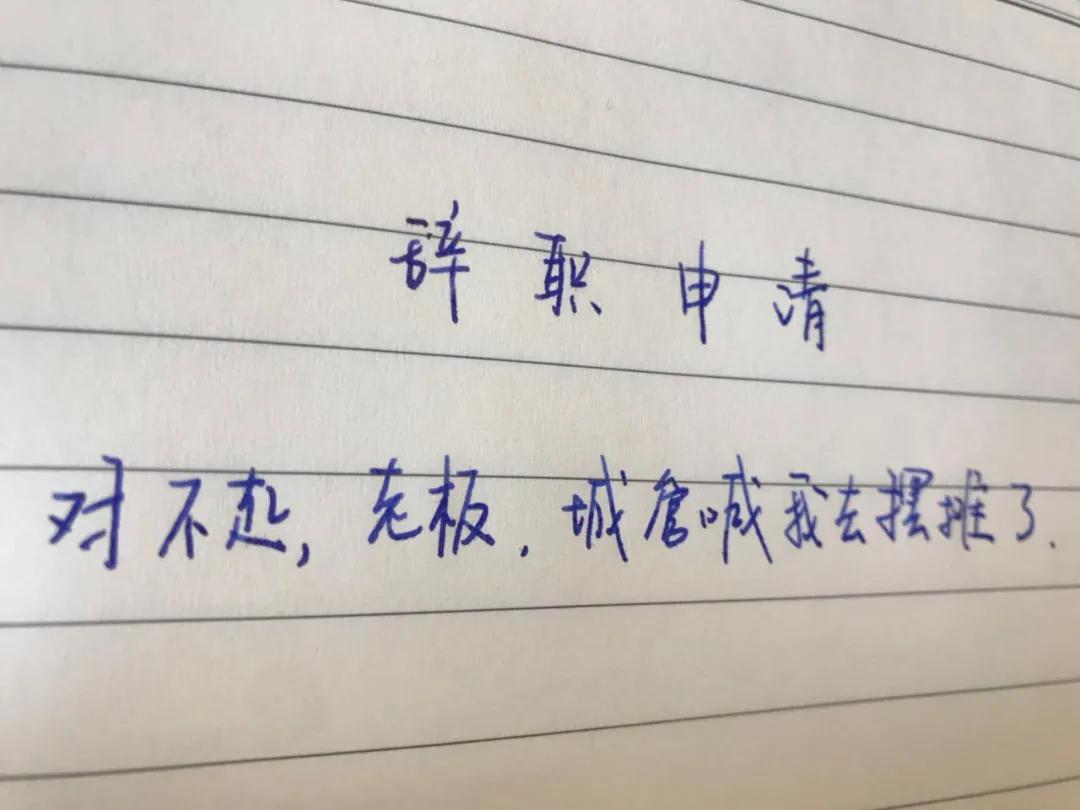 辞职申请
对不起,老板.城管喊我去摆摊了.